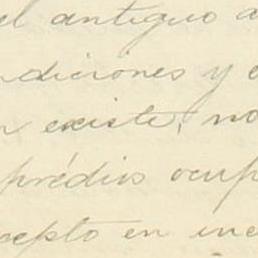 el antiguo a
ndiciones y e
n existe, no
prédios ocup
cepto en ine